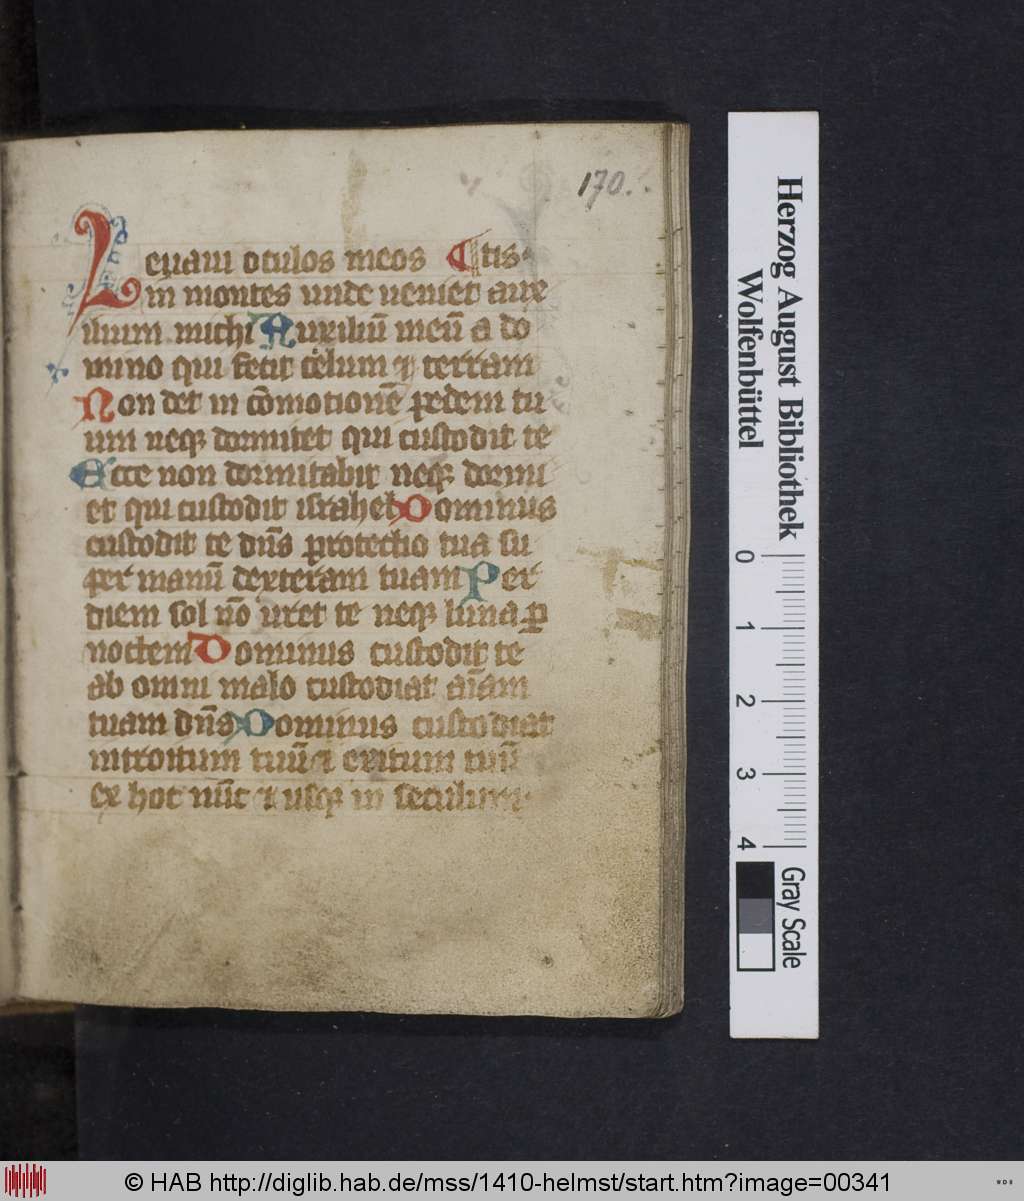 170.
Leuaui oculos meos ¶ tis
in montes unde ueniet aux
ilium michi Auxiliū meū a do
mino qui fecit celum ⁊ terram
Non det in cōmotionē pedem tu
um neqꝫ dormitet qui custodit te
Ecce non dormitabit neqꝫ dormi
et qui custodit israhel Dominus
custodit te dn̄s protectio tua su
per manū dexteram tuam Per
diem sol nō uret te neqꝫ luna ꝑ
noctem Dominus custodit te
ab omni malo custodiat aīam
tuam dn̄s Dominus custodiat
introitum tuū ⁊ exitum tuū
ex hoc nūc ⁊ usqꝫ in seculum
Herzog August Bibliothek
Wolfenbüttel
0 1 2 3 4
Gray Scale
© HAB http://diglib.hab.de/mss/1410-helmst/start.htm?image=00341